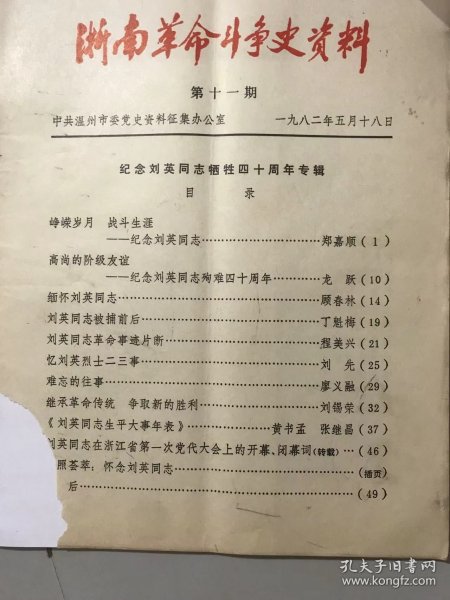 浙南革命斗争史资料
第十一期
中共温州市委党史资料征集办公室 一九八二年五月十八日
纪念刘英同志牺牲四十周年专辑
目 录
峥嵘岁月 战斗生涯
——纪念刘英同志……………………郑嘉顺(1)
高尚的阶级友谊
——纪念刘英同志殉难四十周年…………龙 跃(10)
缅怀刘英同志……………………顾春林(14)
刘英同志被捕前后……………………丁魁梅(19)
刘英同志革命事迹片断……………………程美兴(21)
忆刘英烈士二三事……………………刘 先(25)
难忘的往事……………………廖义融(29)
继承革命传统 争取新的胜利……………………刘锡荣(32)
《刘英同志生平大事年表》……………黄书孟 张继昌(37)
刘英同志在浙江省第一次党代大会上的开幕、闭幕词(转载)…(46)
照荟萃:怀念刘英同志……………………(插页)
后……………………(49)
孔夫子旧书网
www.kongfz.com